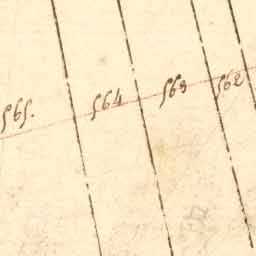 565. 564 563 562